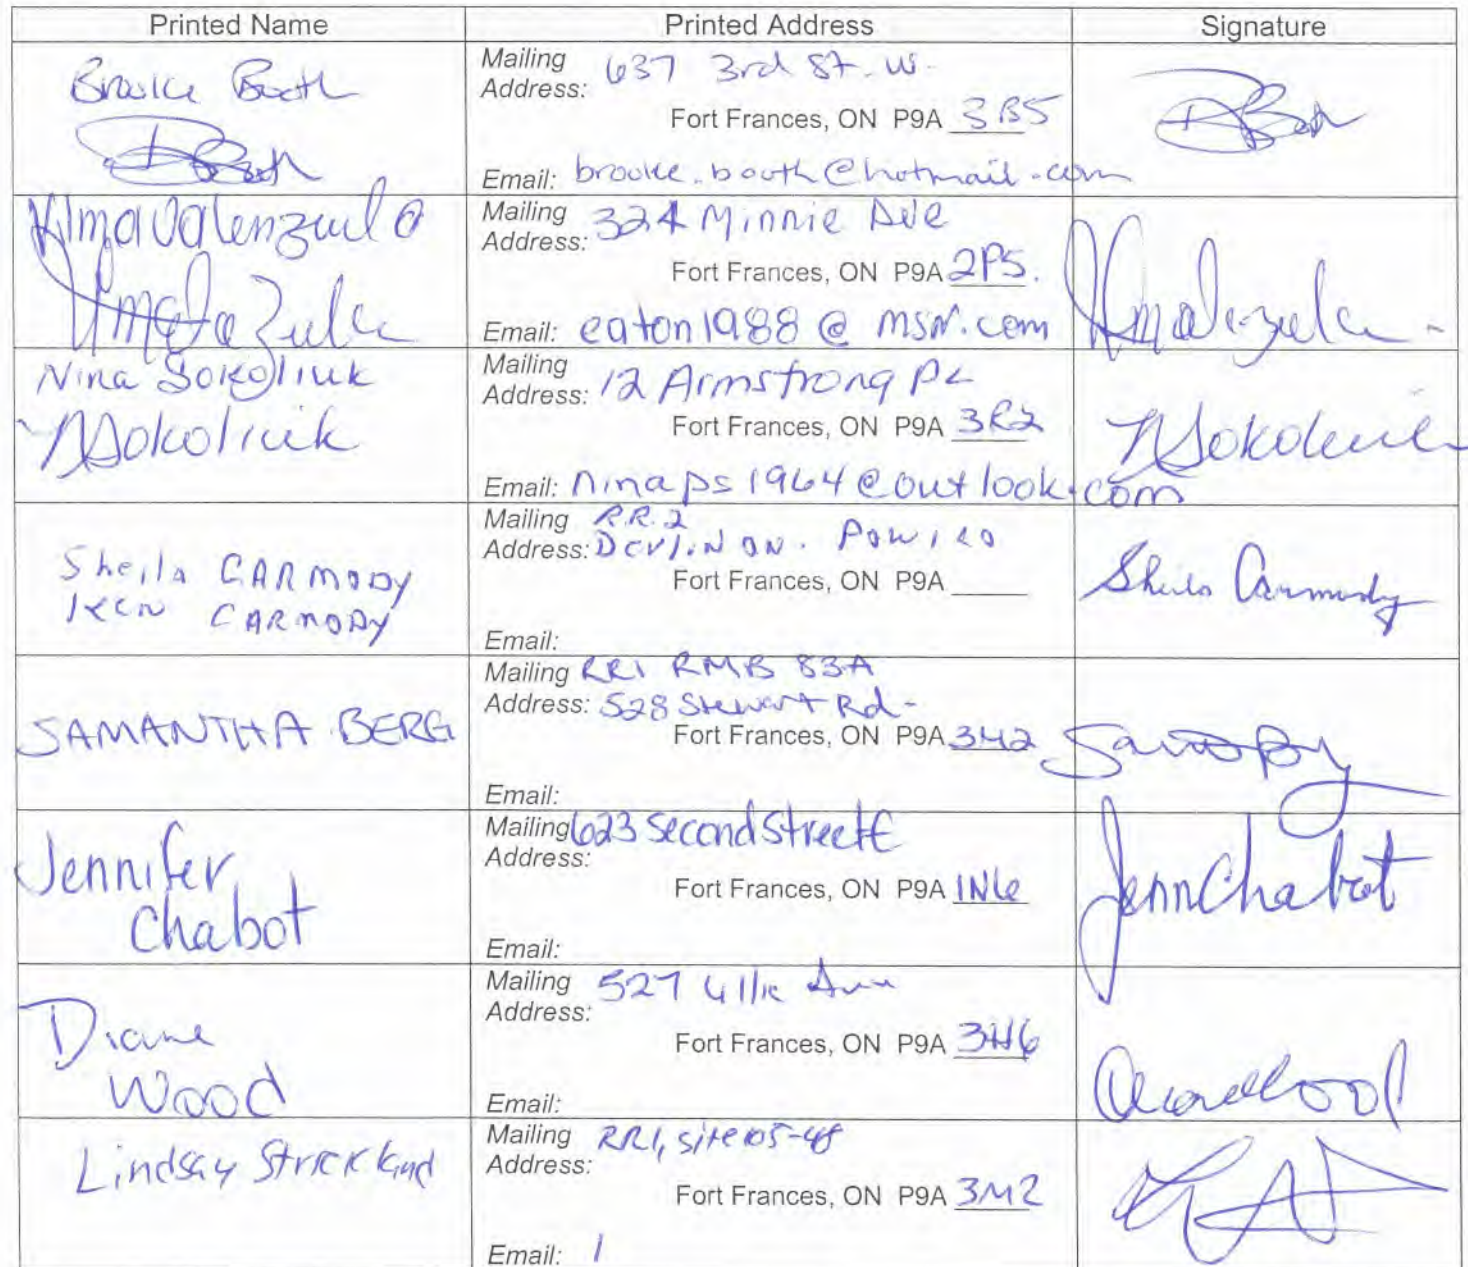 Printed Name Printed Address Signature
Brooke Booth
Mailing Address: 637 3rd St. W.
Fort Frances, ON P9A 3B5
Email: brooke.booth@hotmail.com
Alma Valenzuela
Mailing Address: 324 Minnie Ave
Fort Frances, ON P9A 2P5.
Email: eaton1988@msn.com
Nina Sokoliuk
NSokoliuk
Mailing Address: 12 Armstrong PL
Fort Frances, ON P9A 3R2
Email: ninaps1964@outlook.com
NSokoliuk
Sheila CARMODY
Ken CARMODY
Mailing R.R.2
Address: Devlin ON. P0W 1C0
Fort Frances, ON P9A
Email:
Sheila Carmody
SAMANTHA BERG
Mailing RR1 RMB 83A
Address: 528 Stewart Rd-
Fort Frances, ON P9A 3M2
Email:
Jennifer
Chabot
Mailing Address: 623 Second Street E
Fort Frances, ON P9A 1N6
Email:
Jenn Chabot
Diane
Wood
Mailing Address: 527
Fort Frances, ON P9A 3H6
Email:
Lindsay Strickland
Mailing Address: RR1, site 105-48
Fort Frances, ON P9A 3M2
Email: /